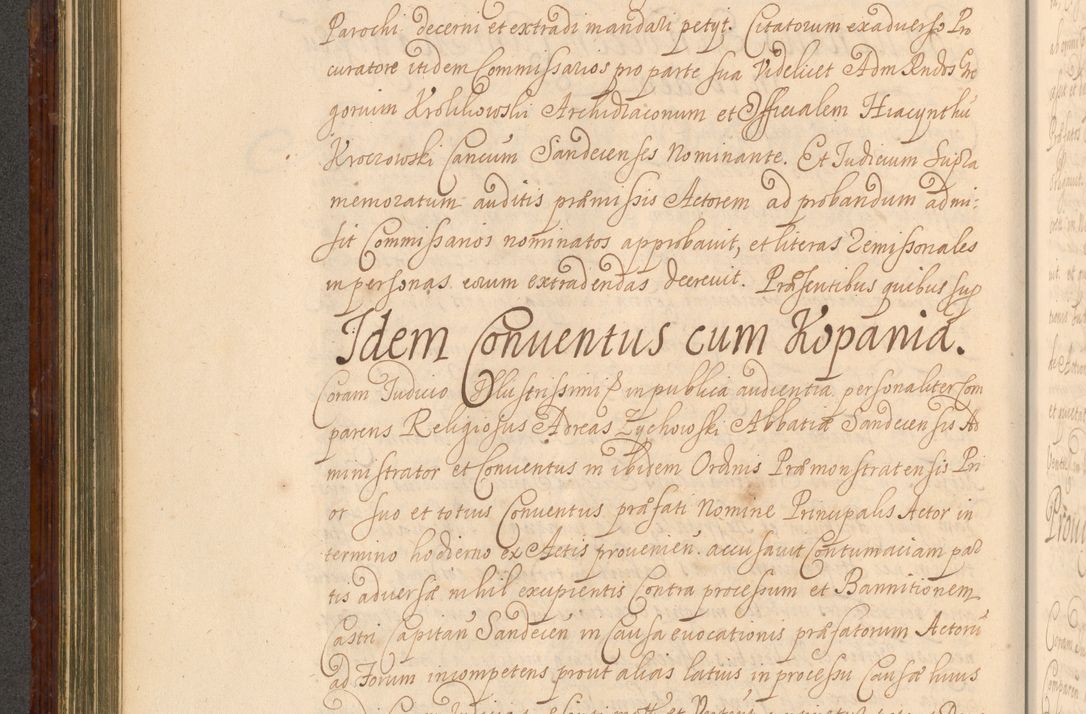 Parochi decerni et extradi mandari petyt. Citatorum ex adverso Pro
curatore itidem Commissarios pro parte sua Videlicet Adm Rndos Gre
gorium Krolikowski Archidiaconum et Officialem Hiacynthũ
Kroczowski Cancum Sandecenses Nominante. Et Judicium Supra
memoratum auditis præmissis Actorem ad probandum admi:
sit Commissarios nominatos approbavit, et literas Remissoriales
in personas eorum extradendas decrevit. Præsentibus quibus sup
Idem Conventus cum Kopania.
Coram Judicio Illustrissimi & in publica audientia personaliter com
parens Religiosus Adreas Zychowski Abbatiæ Sandecensis Ad
ministrator et Conventus in ibidem Ordnis Præmonstratensis Pri
or suo et totius Conventus præfati Nomine Principalis Actor in
termino hodierno ex Actis provenien. accusavit Contumaciam par
tis adversæ nihil excipientis Contra processum et Bannitionem
Castri Capitan Sandecen in Causa evocationis præfatorum Actorũ
ad Forum incompetens prout alias latius in processu Causæ huius